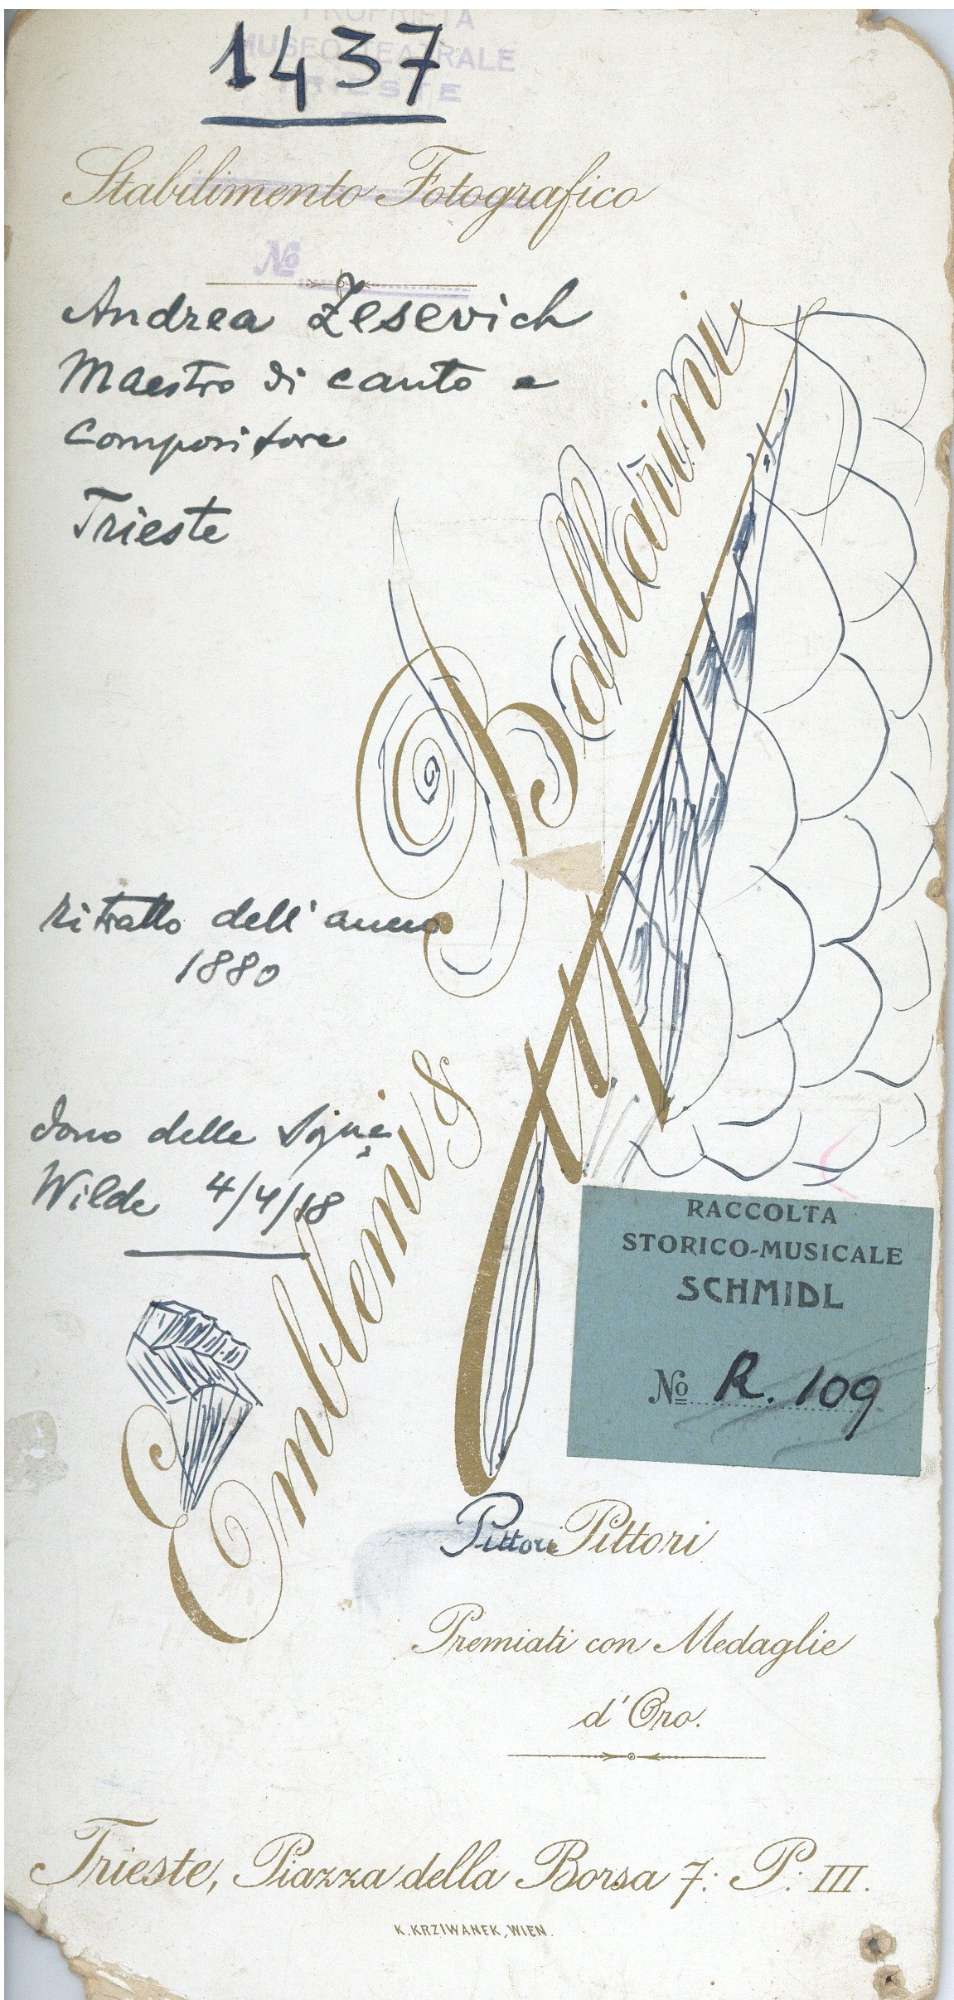 PROPRIETÀ
MUSEO TEATRALE
TRIESTE
1437
Stabilimento Fotografico
No
Andrea Zesevich
Maestro di canto e
compositore
Trieste
Ballarini
Ritratto dell'anno
1880
Emblemi &
dono delle Signe
Wilde 4/4/18
RACCOLTA
STORICO-MUSICALE
SCHMIDL
No R. 109
Pittori Pittori
Premiati con Medaglie
d'Oro.
Trieste, Piazza della Borsa 7: P: III.
K. KRZIWANEK, WIEN.